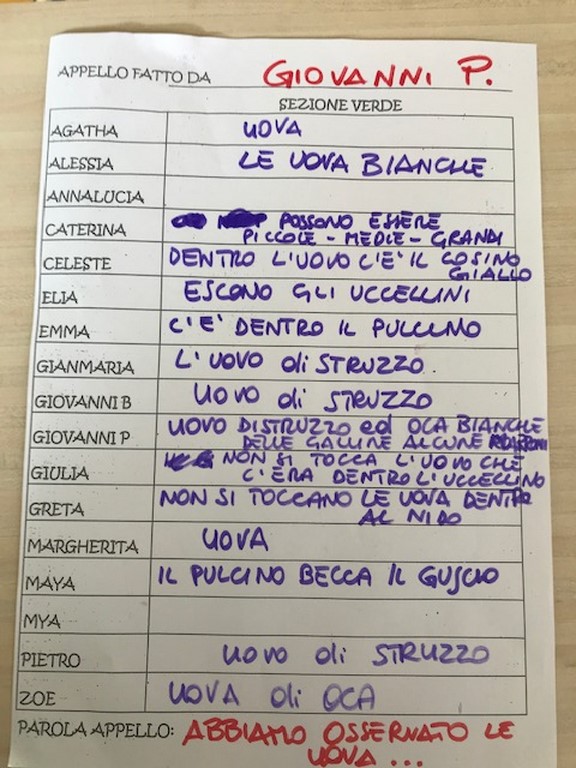 APPELLO FATTO DA GIOVANNI P.
SEZIONE VERDE
AGATHA UOVA
ALESSIA LE UOVA BIANCHE
ANNALUCIA
CATERINA POSSONO ESSERE
PICCOLE - MEDIE - GRANDI
CELESTE DENTRO L'UOVO C'E' IL COSINO
GIALLO
ELIA ESCONO GLI UCCELLINI
EMMA C'E' DENTRO IL PULCINO
GIANMARIA L'UOVO di STRUZZO
GIOVANNI B UOVO di STRUZZO
GIOVANNI P UOVO DI STRUZZO ed OCA BIANCHE
DELLE GALLINE ALCUNE
GIULIA NON SI TOCCA L'UOVO CHE
C'ERA DENTRO L'UCCELLINO
GRETA NON SI TOCCANO LE UOVA DENTRO
AL NIDO
MARGHERITA UOVA
MAYA IL PULCINO BECCA IL GUSCIO
MYA
PIETRO UOVO di STRUZZO
ZOE UOVA di OCA
PAROLA APPELLO: ABBIAMO OSSERVATO LE
UOVA ...